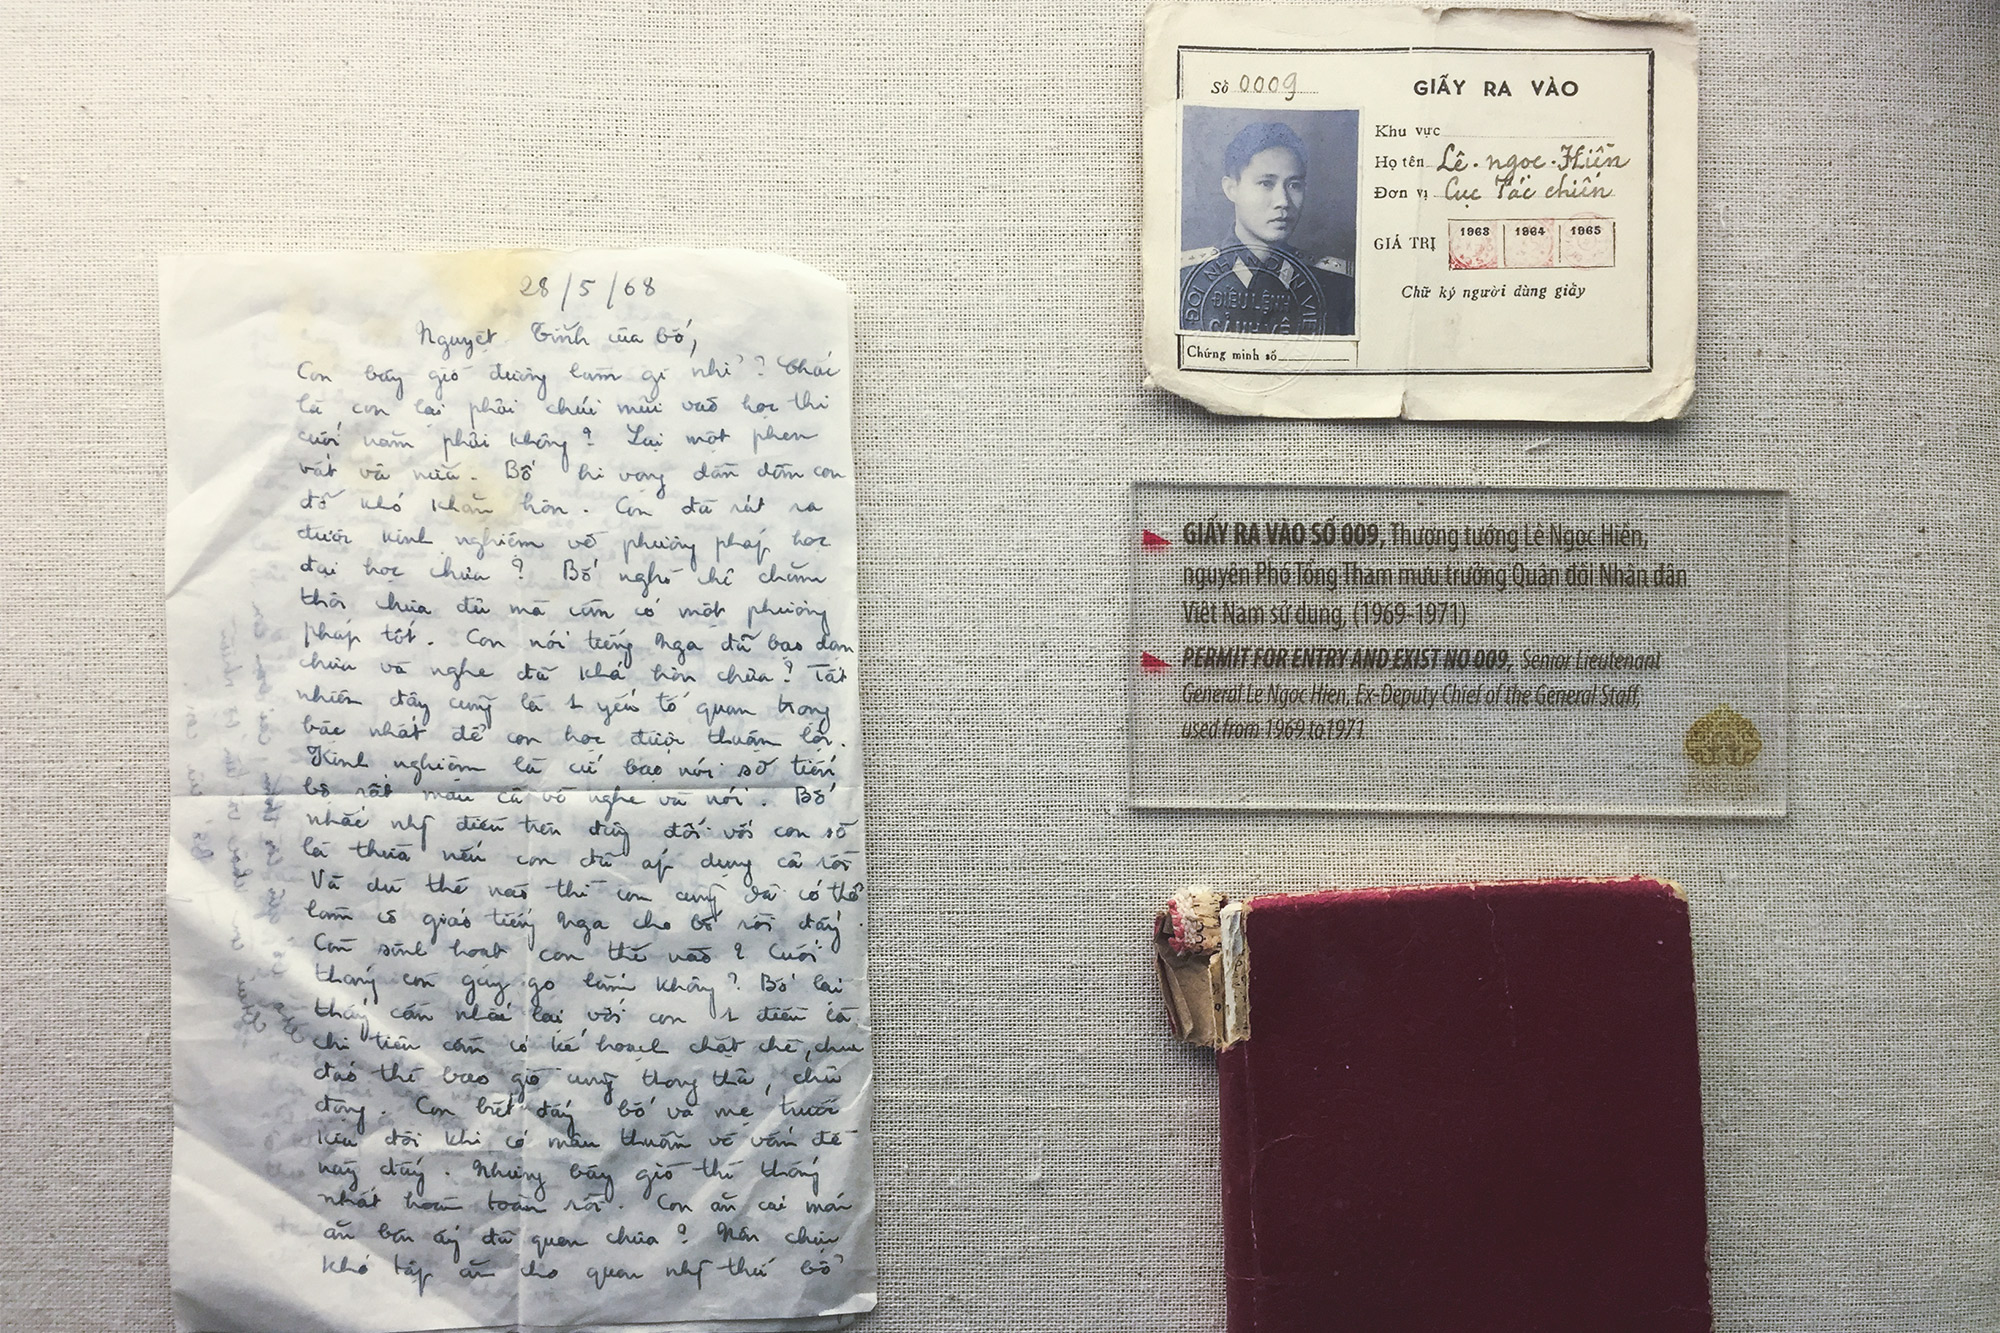 28/5/68
Nguyệt Tĩnh của bố,
Con bây giờ đương làm gì nhỉ? Chắc
là con lại phải chúi mũi vào học thi
cuối năm phải không? Lại một phen
vất vả nữa. Bố hi vọng dần dần con
đỡ khó khăn hơn. Con đã rút ra
được kinh nghiệm về phương pháp học
đại học chưa? Bố nghĩ chỉ chăm
thôi chưa đủ mà cần có một phương
pháp tốt. Con nói tiếng Nga đã bạo dạn
chưa và nghe đã khá hơn chưa? Tất
nhiên đây cũng là 1 yếu tố quan trọng
bậc nhất để con học được thuận lợi.
Kinh nghiệm là cứ bạo nói sẽ tiến
bộ rất mau cả về nghe và nói. Bố
nhắc những điều trên đây đối với con sẽ
là thừa nếu con đã áp dụng cả rồi
Và dù thế nào thì con cũng đã có thể
làm cô giáo tiếng Nga cho bố rồi đấy.
Còn sinh hoạt con thế nào? Cuối
tháng còn gay go lắm không? Bố lại
thấy cần nhắc lại với con 1 điều là
chi tiêu cần có kế hoạch chặt chẽ, chu
đáo thế bao giờ cũng thong thả, chủ
động. Con biết đấy bố và mẹ trước
kia đôi khi có mâu thuẫn về vấn đề
này đấy. Nhưng bây giờ thì thống
nhất hoàn toàn rồi. Con ăn cái món
ăn bên ấy đã quen chưa? Nên chịu
khó tập ăn cho quen như thứ bơ
Số 0009
GIẤY RA VÀO
Khu vực
Họ tên Lê Ngọc Hiền
Đơn vị Cục Tác chiến
GIÁ TRỊ 1963 1964 1965
Chữ ký người dùng giấy
ĐIỀU LỆNH
Chứng minh số
GIẤY RA VÀO SỐ 009, Thượng tướng Lê Ngọc Hiền,
nguyên Phó Tổng Tham mưu trưởng Quân đội Nhân dân
Việt Nam sử dụng, (1969-1971)
PERMIT FOR ENTRY AND EXIST NO 009, Senior Lieutenant
General Le Ngoc Hien, Ex-Deputy Chief of the General Staff,
used from 1969 to1971